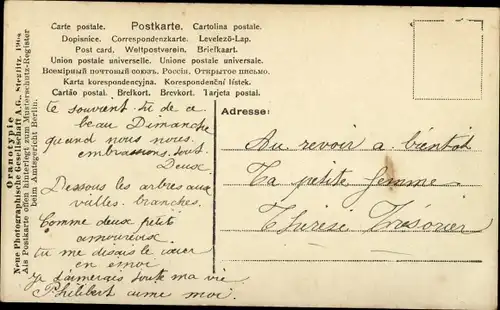 Carte postale. Postkarte. Cartolina postale.
Dopisnice. Correspondenzkarte. Levelező-Lap.
Post card. Weltpostverein. Briefkaart.
Union postale universelle. Unione postale universale.
Всемірный почтовый союзъ. Россія. Открытое письмо.
Karta korespondencyjna. Korespondenční lístek.
Cartão postal. Brefkort. Brevkort. Tarjeta postal.
Oranotypie
Neue Photographische Gesellschaft A.G., Steglitz.
Als Postkarte offen hinterlegt zum Musterschutz-Register
beim Amtsgericht Berlin.
te souvent-tu de ce
beau Dimanche
quand nous nous
embrassions tout
Deux
Dessous les arbres aux
vieilles branches.
Comme deux petit
amoureux
tu me desais le cœur
en emoi
je t'aimerais toute ma vie
Philibert aime moi.
Adresse:
Au revoir a bientot
Ta petite femme
Thérèse Trésorier